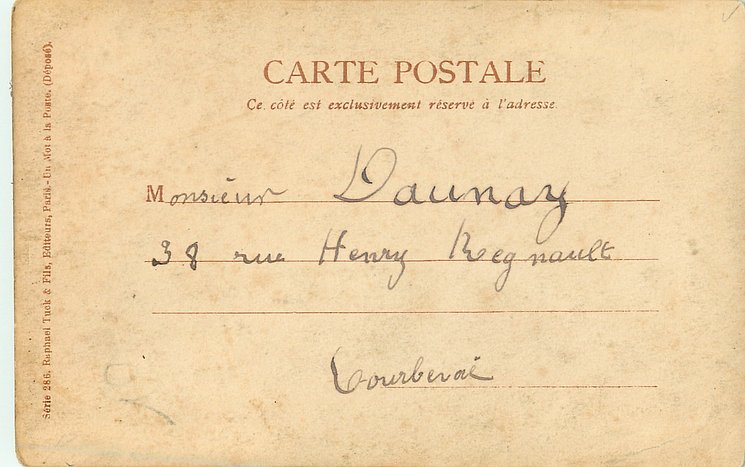 CARTE POSTALE
Ce côté est exclusivement réservé à l'adresse.
Monsieur Daunay
38 rue Henry Regnault
Courbevoie
Série 286. Raphael Tuck & Fils, Editeurs, Paris.-Un Mot à la Poste. (Déposé).